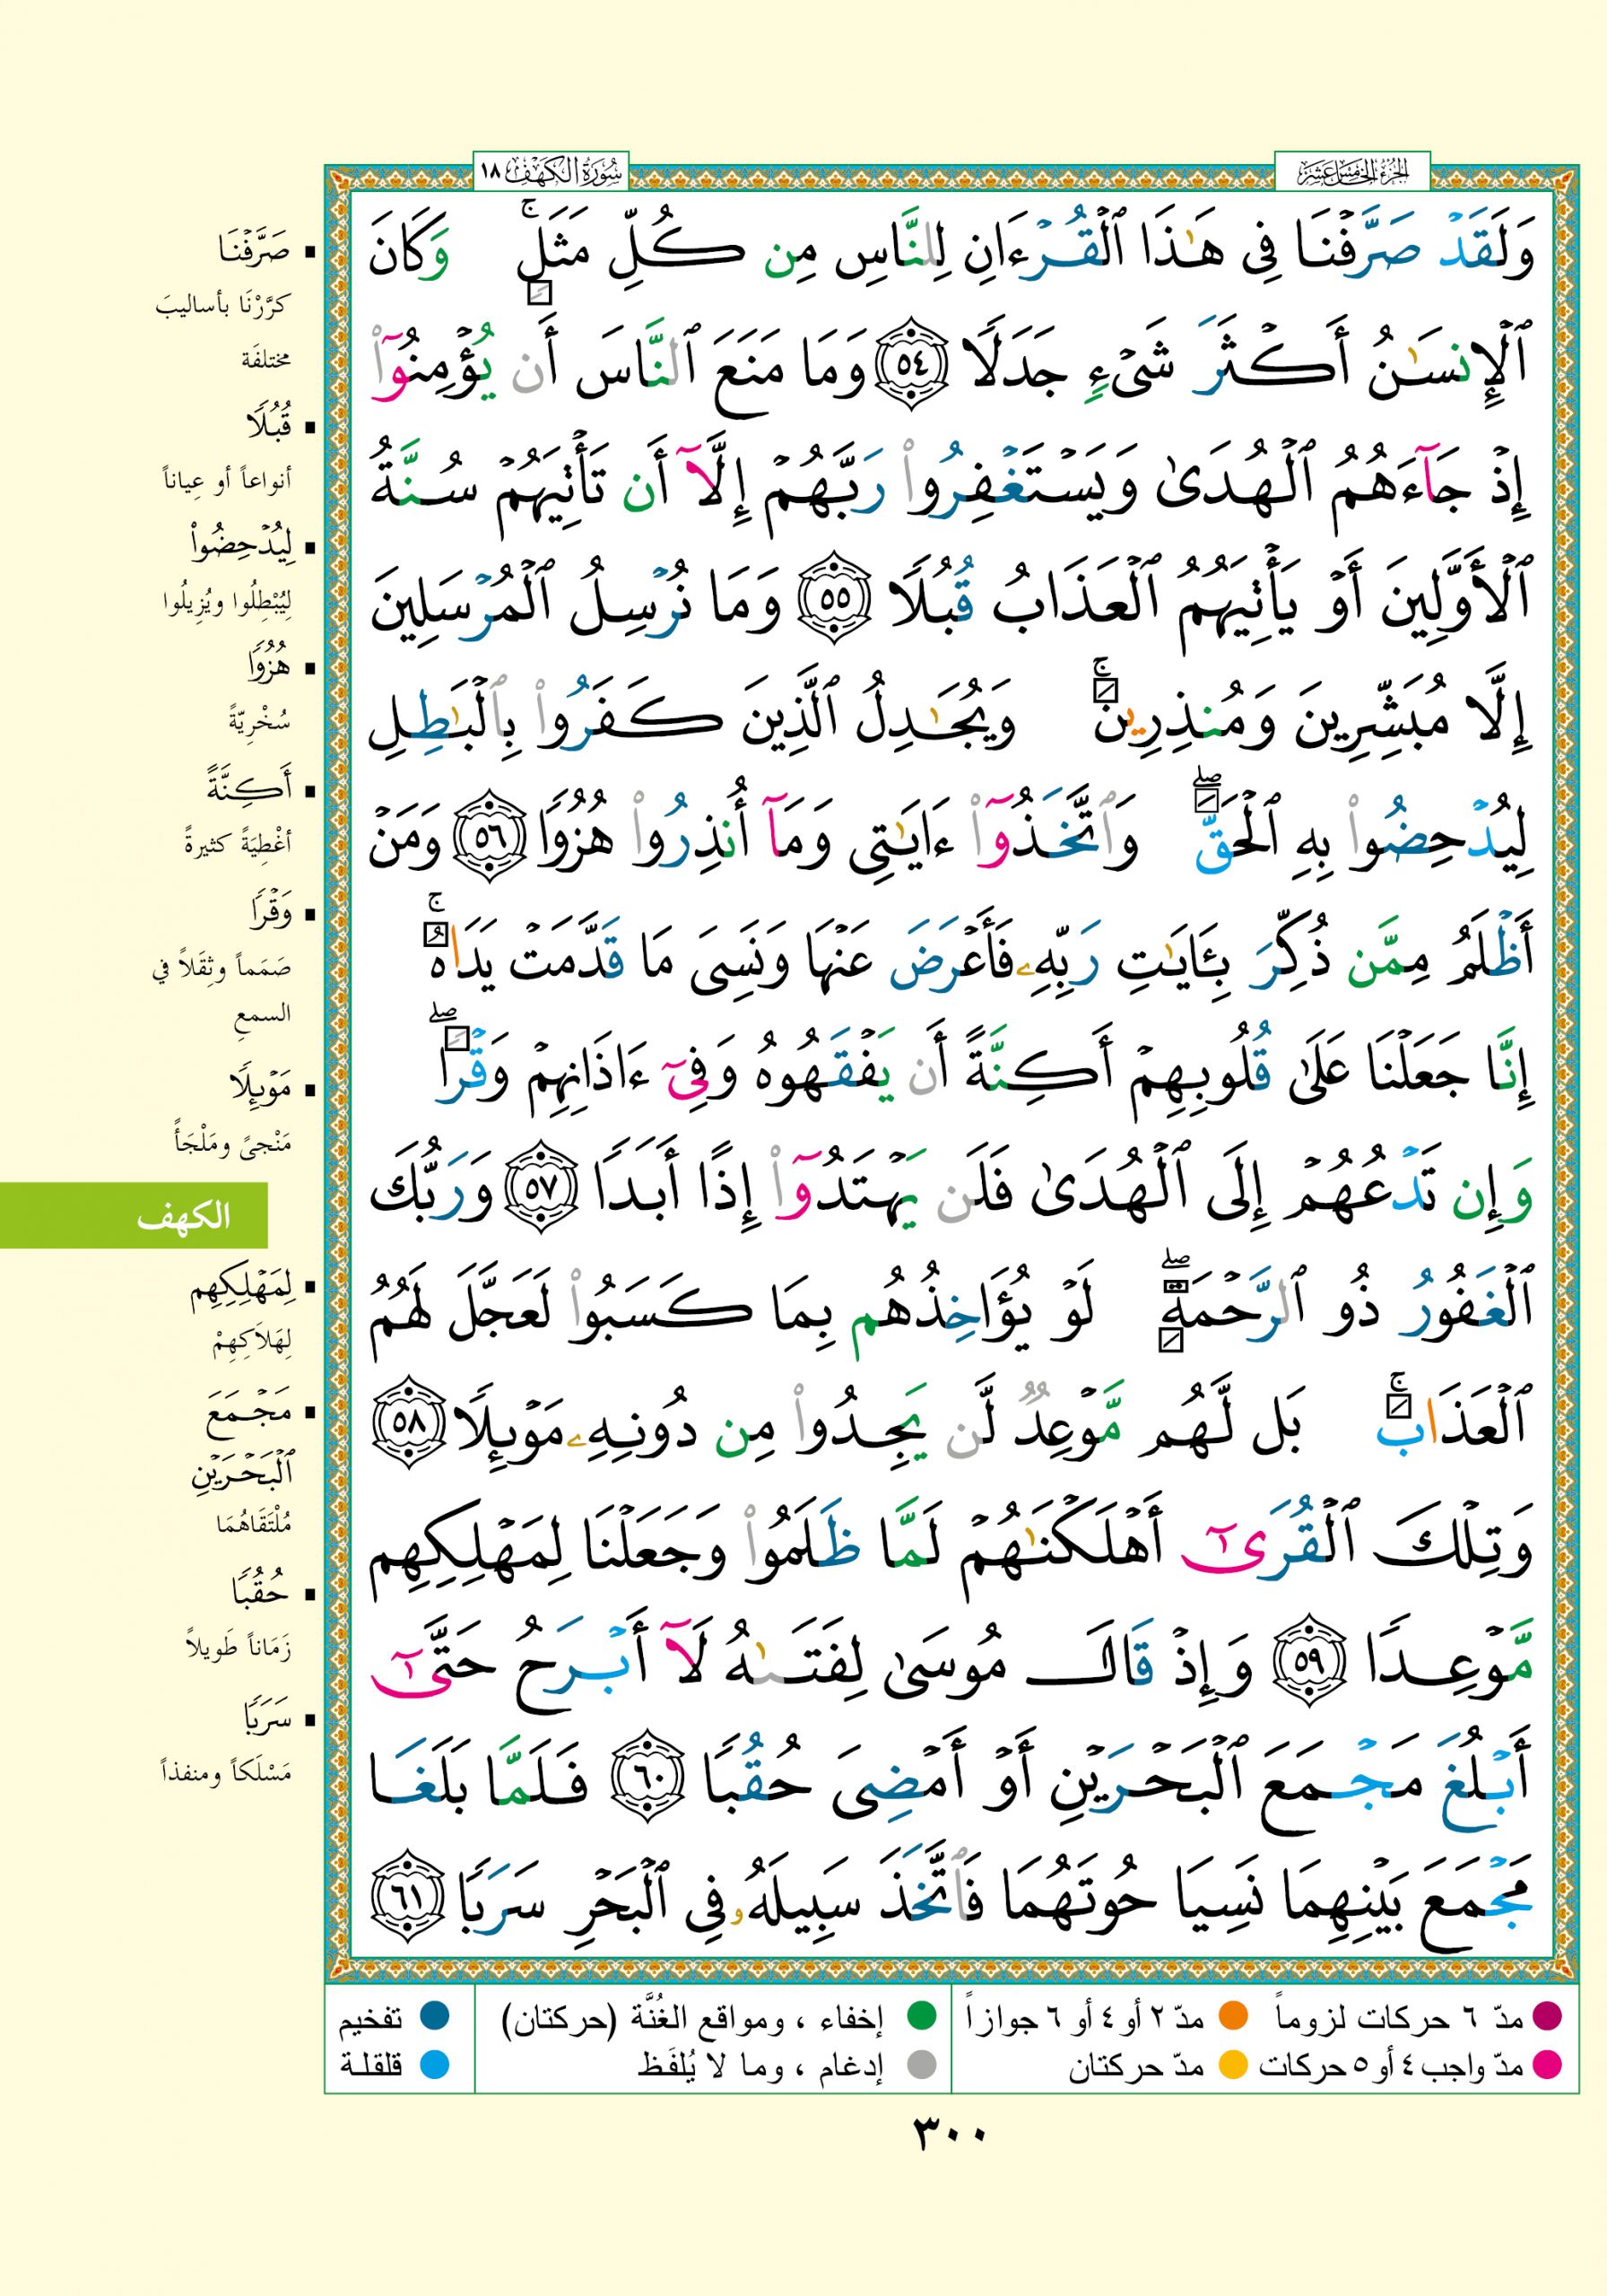 الجزء الخامس عشر
سورة الكهف ١٨
وَلَقَدۡ صَرَّفۡنَا فِي هَٰذَا ٱلۡقُرۡءَانِ لِلنَّاسِ مِن كُلِّ مَثَلٖۚ وَكَانَ
ٱلۡإِنسَٰنُ أَكۡثَرَ شَيۡءٖ جَدَلٗا ٥٤ وَمَا مَنَعَ ٱلنَّاسَ أَن يُؤۡمِنُوٓاْ
إِذۡ جَآءَهُمُ ٱلۡهُدَىٰ وَيَسۡتَغۡفِرُواْ رَبَّهُمۡ إِلَّآ أَن تَأۡتِيَهُمۡ سُنَّةُ
ٱلۡأَوَّلِينَ أَوۡ يَأۡتِيَهُمُ ٱلۡعَذَابُ قُبُلٗا ٥٥ وَمَا نُرۡسِلُ ٱلۡمُرۡسَلِينَ
إِلَّا مُبَشِّرِينَ وَمُنذِرِينَۚ وَيُجَٰدِلُ ٱلَّذِينَ كَفَرُواْ بِٱلۡبَٰطِلِ
لِيُدۡحِضُواْ بِهِ ٱلۡحَقَّۖ وَٱتَّخَذُوٓاْ ءَايَٰتِي وَمَآ أُنذِرُواْ هُزُوٗا ٥٦ وَمَنۡ
أَظۡلَمُ مِمَّن ذُكِّرَ بِـَٔايَٰتِ رَبِّهِۦ فَأَعۡرَضَ عَنۡهَا وَنَسِيَ مَا قَدَّمَتۡ يَدَاهُۚ
إِنَّا جَعَلۡنَا عَلَىٰ قُلُوبِهِمۡ أَكِنَّةً أَن يَفۡقَهُوهُ وَفِيٓ ءَاذَانِهِمۡ وَقۡرٗاۖ
وَإِن تَدۡعُهُمۡ إِلَى ٱلۡهُدَىٰ فَلَن يَهۡتَدُوٓاْ إِذًا أَبَدٗا ٥٧ وَرَبُّكَ
ٱلۡغَفُورُ ذُو ٱلرَّحۡمَةِۖ لَوۡ يُؤَاخِذُهُم بِمَا كَسَبُواْ لَعَجَّلَ لَهُمُ
ٱلۡعَذَابَۚ بَل لَّهُم مَّوۡعِدٞ لَّن يَجِدُواْ مِن دُونِهِۦ مَوۡئِلٗا ٥٨
وَتِلۡكَ ٱلۡقُرَىٰٓ أَهۡلَكۡنَٰهُمۡ لَمَّا ظَلَمُواْ وَجَعَلۡنَا لِمَهۡلِكِهِم
مَّوۡعِدٗا ٥٩ وَإِذۡ قَالَ مُوسَىٰ لِفَتَىٰهُ لَآ أَبۡرَحُ حَتَّىٰٓ
أَبۡلُغَ مَجۡمَعَ ٱلۡبَحۡرَيۡنِ أَوۡ أَمۡضِيَ حُقُبٗا ٦٠ فَلَمَّا بَلَغَا
مَجۡمَعَ بَيۡنِهِمَا نَسِيَا حُوتَهُمَا فَٱتَّخَذَ سَبِيلَهُۥ فِي ٱلۡبَحۡرِ سَرَبٗا ٦١
صَرَّفۡنَا
كرَّرْنَا بأساليبَ
مختلفَة
قُبُلٗا
أنواعاً أو عِياناً
لِيُدۡحِضُواْ
لِيُبْطِلُوا ويُزِيلُوا
هُزُوٗا
سُخْرِيّةً
أَكِنَّةً
أغْطِيَةً كثيرةً
وَقۡرٗا
صَمَماً وثِقَلاً في
السمعِ
مَوۡئِلٗا
مَنْجىً ومَلْجَأً
الكهف
لِمَهۡلِكِهِم
لِهَلاَكِهِمْ
مَجۡمَعَ
ٱلۡبَحۡرَيۡنِ
مُلْتَقَاهُمَا
حُقُبٗا
زَمَاناً طَويلاً
سَرَبٗا
مَسْلَكاً ومنفذاً
مدّ ٦ حركات لزوماً مدّ ٢ أو ٤ أو ٦ جوازاً إخفاء ، ومواقع الغُنَّة (حركتان) تفخيم
مدّ واجب ٤ أو ٥ حركات مدّ حركتان إدغام ، وما لا يُلفَظ قلقلة
٣٠٠